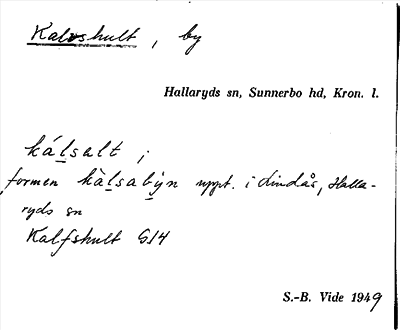 Kalvshult, by
Hallaryds sn, Sunnerbo hd, Kron. l.
kálsalt ;
formen kàlsabýn uppt. i Lindås, Halla-
ryds sn
Kalfshult GJ4
S.-B. Vide 1949